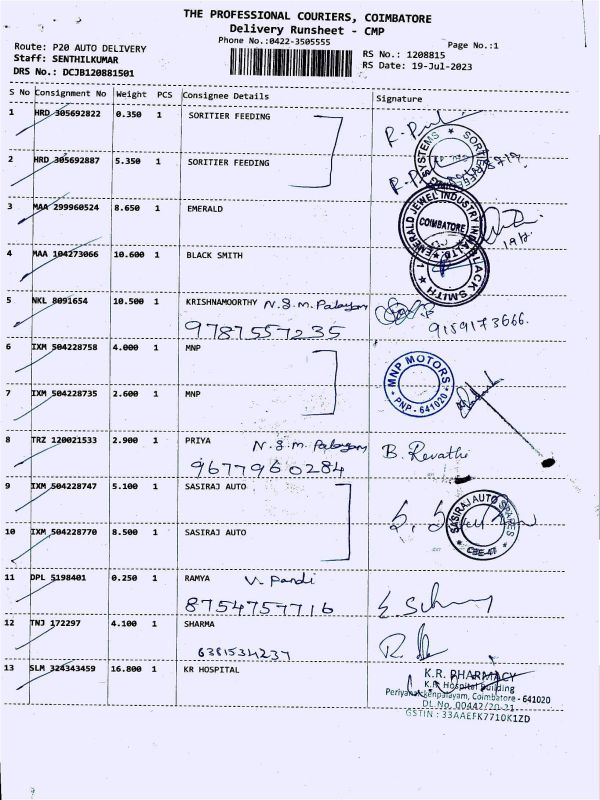 THE PROFESSIONAL COURIERS, COIMBATORE
Delivery Runsheet - CMP
Phone No.:0422-3505555
Page No.:1
Route: P20 AUTO DELIVERY
Staff: SENTHILKUMAR
DRS No.: DCJB120881501
RS No.: 1208815
RS Date: 19-Jul-2023
S No Consignment No Weight PCS Consignee Details Signature
1 HRD 305692822 0.350 1 SORITIER FEEDING
2 HRD 305692887 5.350 1 SORITIER FEEDING
SYSTEMS
3 MAA 299960524 8.650 1 EMERALD
EMERALD JEWEL INDUSTRY
COIMBATORE
4 MAA 104273066 10.600 1 BLACK SMITH
BLACK SMITH
5 NKL 8091654 10.500 1 KRISHNAMOORTHY N.G.M. Palayam
9787557235 9159173666.
6 IXM 504228758 4.000 1 MNP
MNP MOTORS
PNP - 641020
7 IXM 504228735 2.600 1 MNP
8 TRZ 120021533 2.900 1 PRIYA N.G.M. Palayam B. Revathi
9677960284
9 IXM 504228747 5.100 1 SASIRAJ AUTO
SASIRAJ AUTO SPARES
CBE-47
10 IXM 504228770 8.500 1 SASIRAJ AUTO
11 DPL 5198401 0.250 1 RAMYA V. Pandi
8754757716
12 TNJ 172297 4.100 1 SHARMA
6381534237
13 SLM 324343459 16.800 1 KR HOSPITAL
K.R. PHARMACY
K.R. Hospital Building
Periyanaickenpalayam, Coimbatore - 641020
DL.No. 00442/20-21
GSTIN : 33AAEFK7710K1ZD